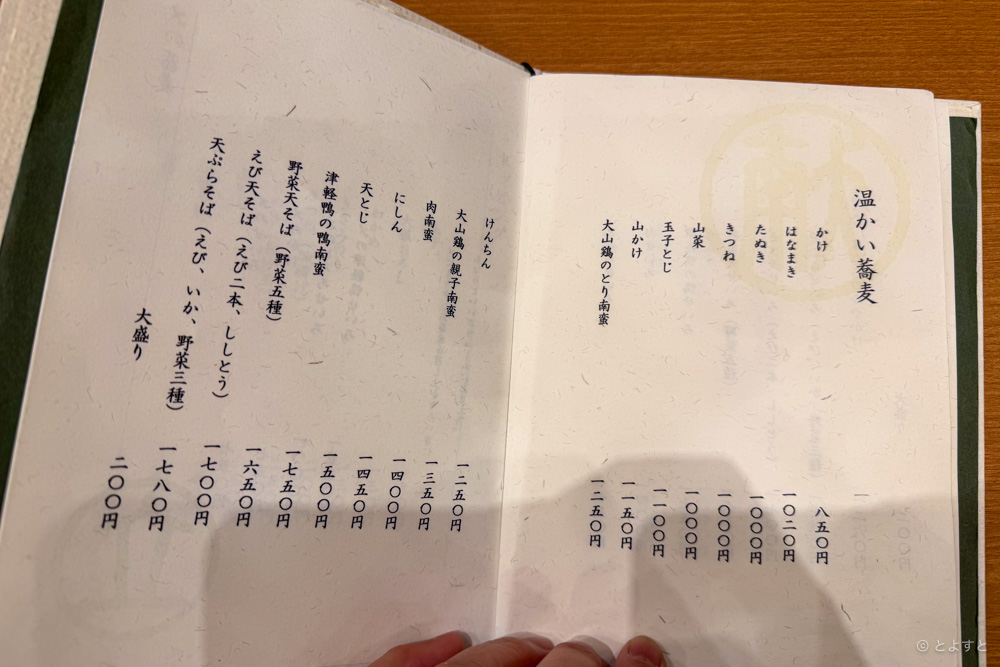 温かい蕎麦
かけ 八五〇円
はなまき 一〇二〇円
たぬき 一〇〇〇円
きつね 一〇〇〇円
山菜 一〇〇〇円
玉子とじ 一一〇〇円
山かけ 一一五〇円
大山鶏のとり南蛮 一二五〇円
けんちん 一二五〇円
大山鶏の親子南蛮 一三五〇円
肉南蛮 一四〇〇円
にしん 一四五〇円
天とじ 一五〇〇円
津軽鴨の鴨南蛮 一七五〇円
野菜天そば（野菜五種） 一六五〇円
えび天そば（えび二本、ししとう） 一七〇〇円
天ぷらそば（えび、いか、野菜三種） 一七八〇円
大盛り 二〇〇円
© とよすと